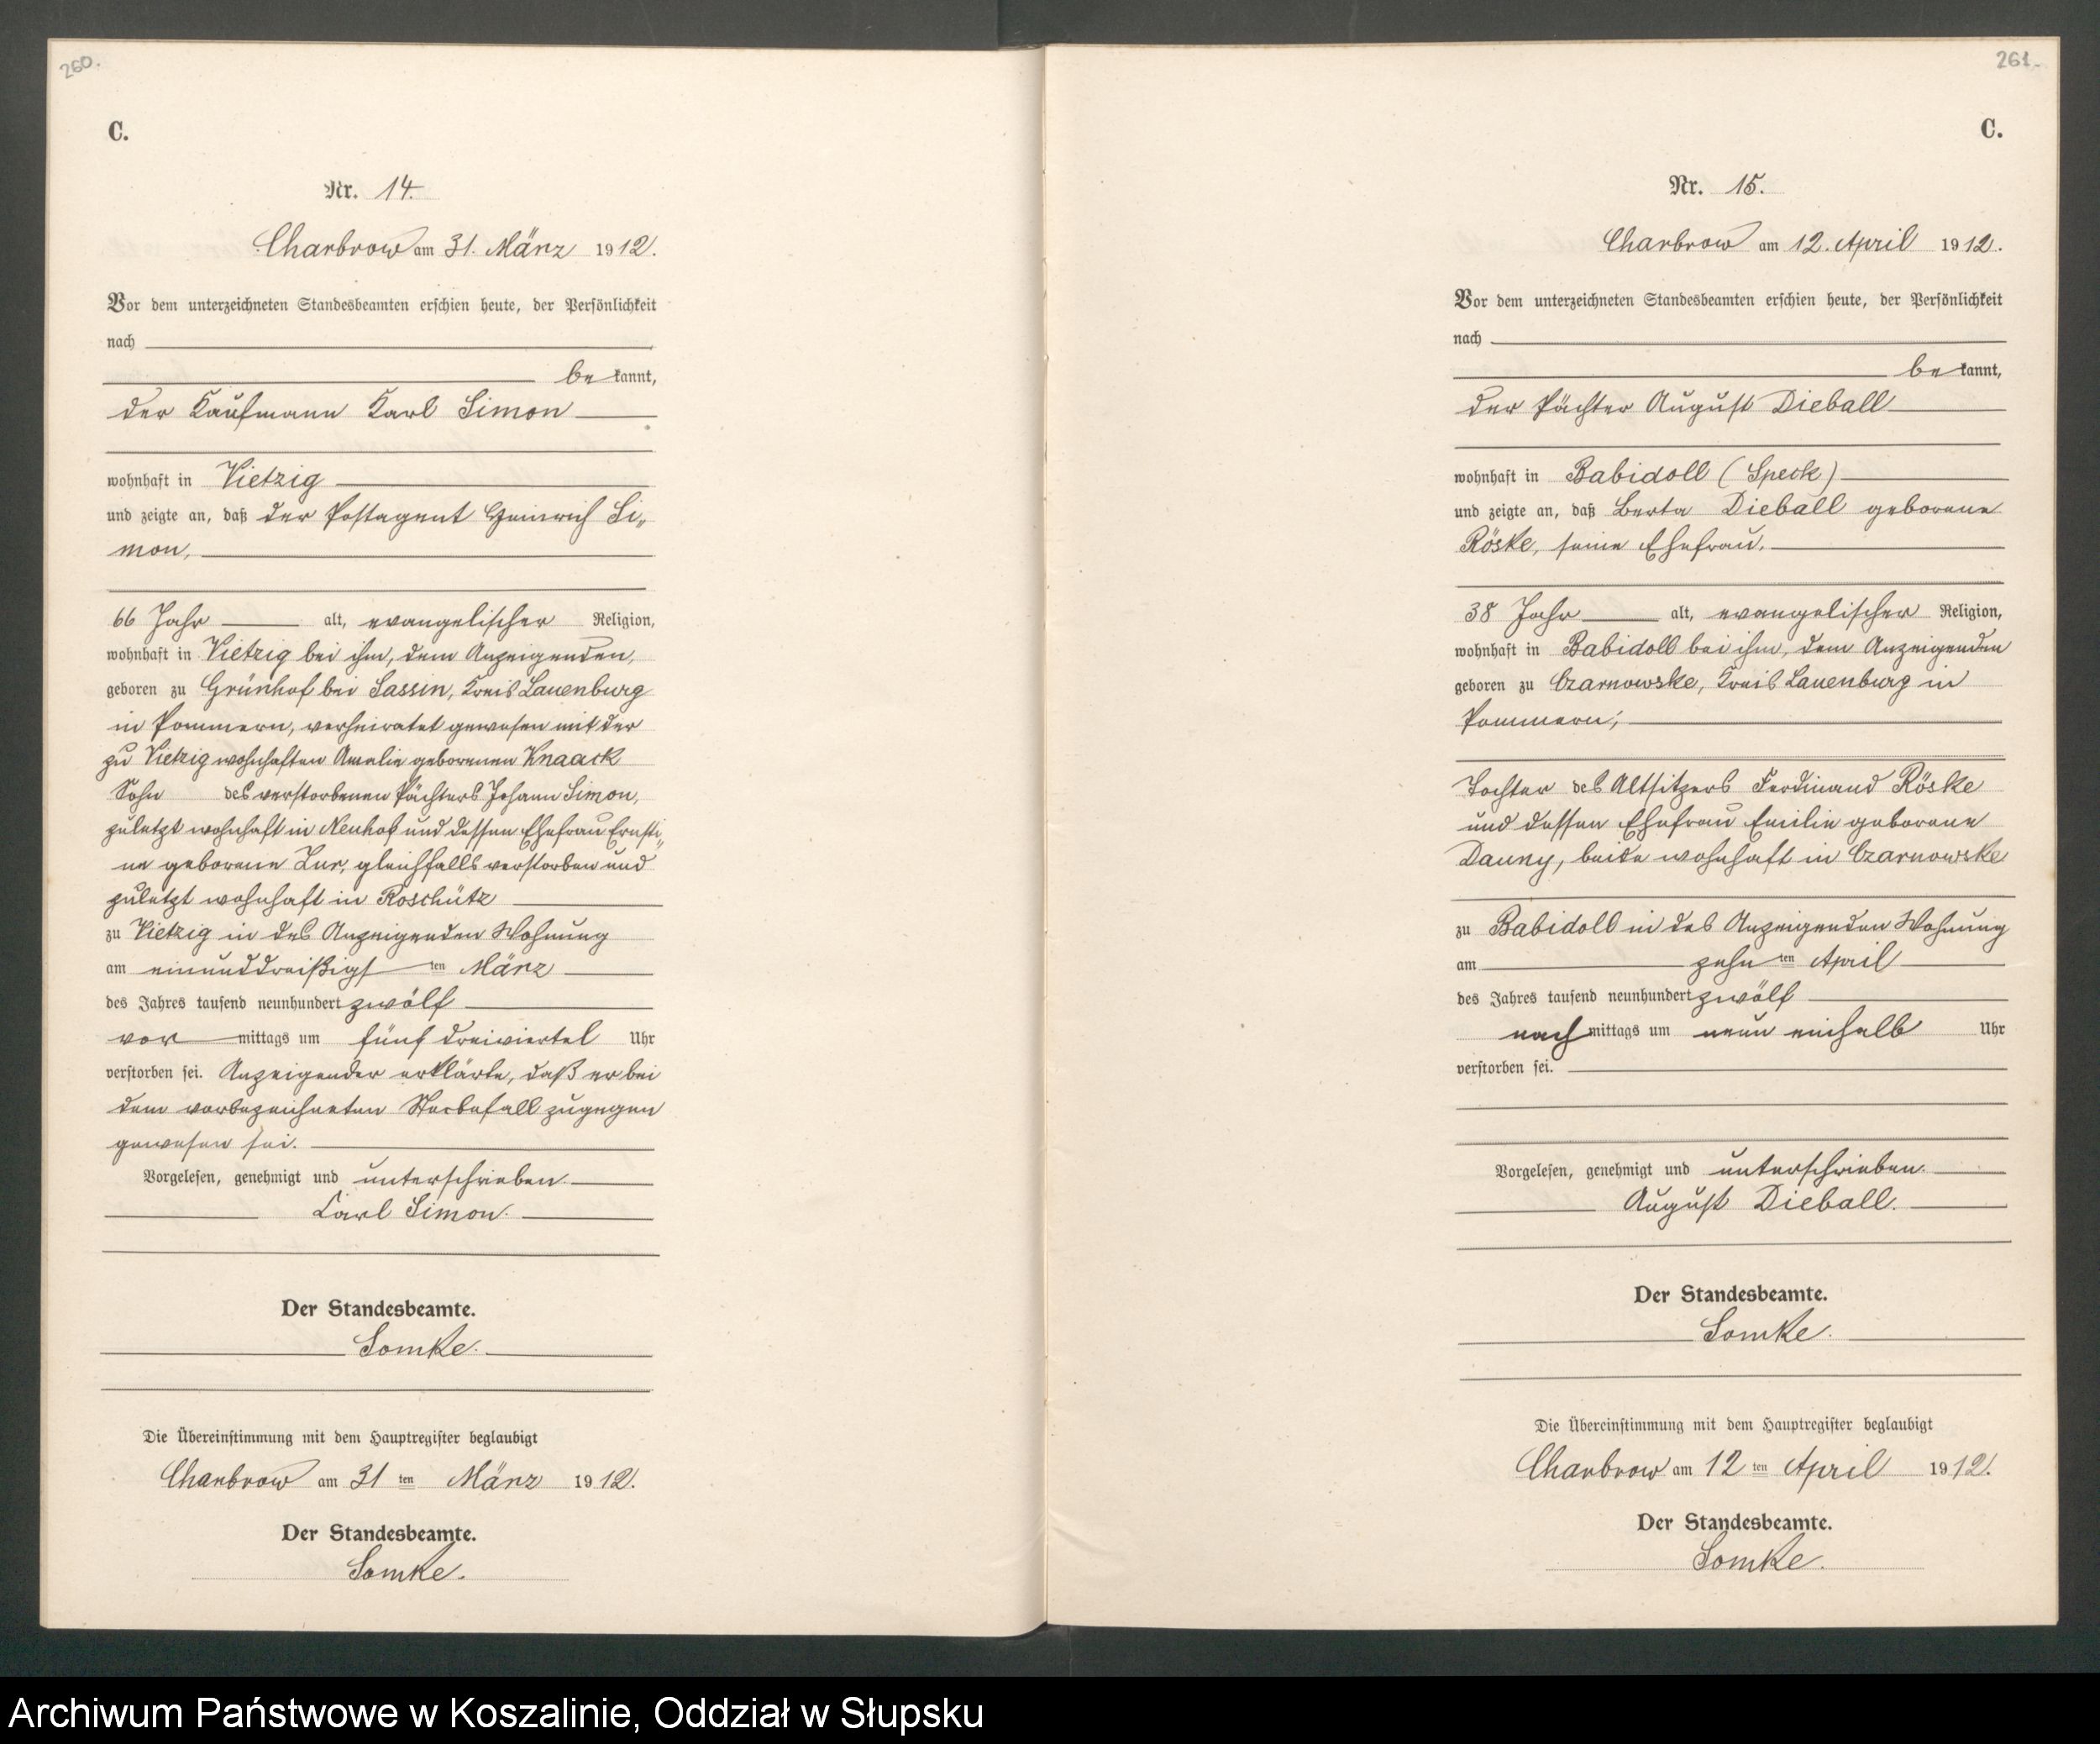 260.
C.
Nr. 14.
Charbrow am 31. März 1912.
Vor dem unterzeichneten Standesbeamten erschien heute, der Persönlichkeit
nach
be kannt,
der Kaufmann Karl Simon
wohnhaft in Vietzig
und zeigte an, daß der Postagent Heinrich Si„
mon,
66 Jahr alt, evangelischer Religion,
wohnhaft in Vietzig bei ihm, dem Anzeigenden,
geboren zu Grünhof bei Sassin, Kreis Lauenburg
in Pommern, verheiratet gewesen mit der
zu Vietzig wohnhaften Amalie geborenen Knaack
Sohn des verstorbenen Pächters Johann Simon,
zuletzt wohnhaft in Neuhof und dessen Ehefrau Ernsti„
ne geborene Lur, gleichfalls verstorben und
zuletzt wohnhaft in Roschütz
zu Vietzig in des Anzeigenden Wohnung
am einunddreißigst ten März
des Jahres tausend neunhundert zwölf
vor mittags um fünf dreiviertel Uhr
verstorben sei. Anzeigender erklärte, daß er bei
dem vorbezeichneten Sterbefall zugegen
gewesen sei.
Vorgelesen, genehmigt und unterschrieben.
Karl Simon.
Der Standesbeamte.
Somke.
Die Übereinstimmung mit dem Hauptregister beglaubigt
Charbrow am 31 ten März 1912.
Der Standesbeamte.
Somke.
261.
C.
Nr. 15.
Charbrow am 12. April 1912.
Vor dem unterzeichneten Standesbeamten erschien heute, der Persönlichkeit
nach
be kannt,
der Pächter August Dieball
wohnhaft in Babidoll (Speck)
und zeigte an, daß Berta Dieball geborene
Röske, seine Ehefrau,
38 Jahr alt, evangelischer Religion,
wohnhaft in Babidoll bei ihm, dem Anzeigenden
geboren zu Czarnowske, Kreis Lauenburg in
Pommern;
Tochter des Altsitzers Ferdinand Röske
und dessen Ehefrau Emilie geborene
Dauny, beide wohnhaft in Czarnowske
zu Babidoll in des Anzeigenden Wohnung
am zehn ten April
des Jahres tausend neunhundert zwölf
nach mittags um neun einhalb Uhr
verstorben sei.
Vorgelesen, genehmigt und unterschrieben.
August Dieball.
Der Standesbeamte.
Somke.
Die Übereinstimmung mit dem Hauptregister beglaubigt
Charbrow am 12 ten April 1912.
Der Standesbeamte.
Somke.
Archiwum Państwowe w Koszalinie, Oddział w Słupsku